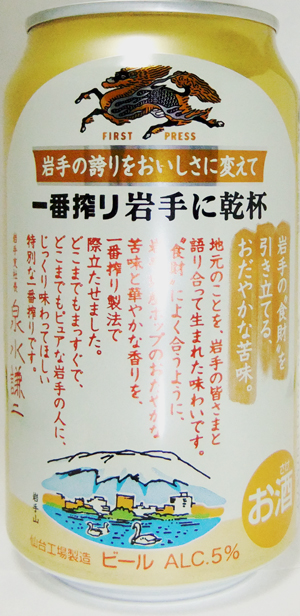 FIRST PRESS
岩手の誇りをおいしさに変えて
一番搾り 岩手に乾杯
岩手の“食財”を
引き立てる、
おだやかな苦味。
地元のことを、岩手の皆さまと
語り合って生まれた味わいです。
“食財”によく合うように、
ホップのおだやかな
苦味と華やかな香りを、
一番搾り製法で
際立たせました。
どこまでもまっすぐで、
どこまでもピュアな岩手の人に、
じっくり味わってほしい
特別な一番搾りです。
岩手支社長 泉水謙二
岩手山
お酒
仙台工場製造 ビール ALC.5%